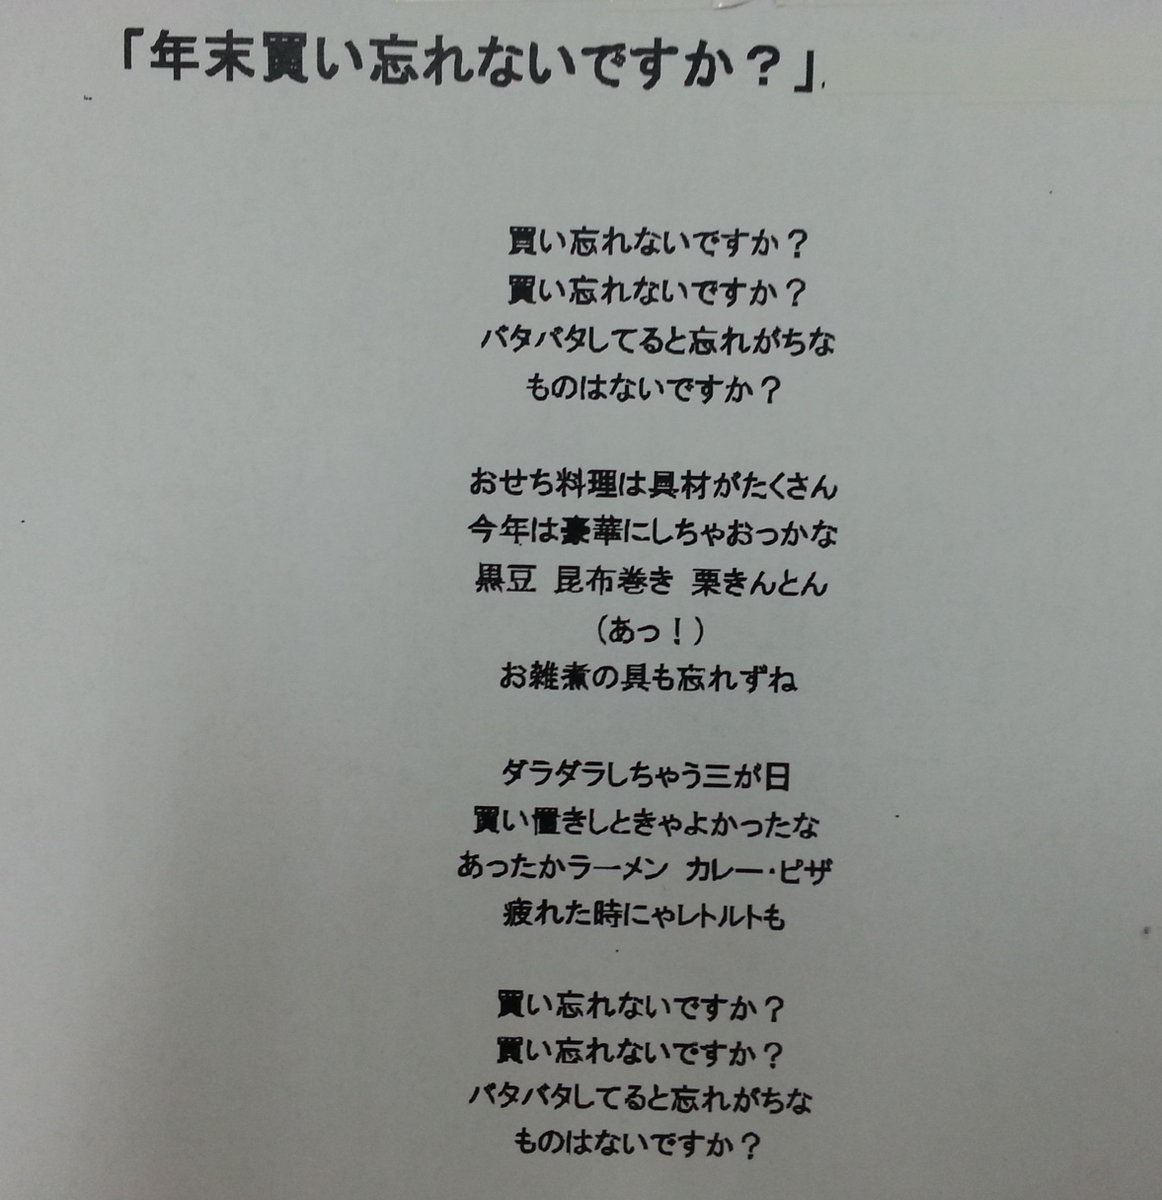 「年末買い忘れないですか？」
買い忘れないですか？
買い忘れないですか？
バタバタしてると忘れがちな
ものはないですか？
おせち料理は具材がたくさん
今年は豪華にしちゃおっかな
黒豆 昆布巻き 栗きんとん
（あっ！）
お雑煮の具も忘れずね
ダラダラしちゃう三が日
買い置きしときゃよかったな
あったかラーメン カレー・ピザ
疲れた時にゃレトルトも
買い忘れないですか？
買い忘れないですか？
バタバタしてると忘れがちな
ものはないですか？